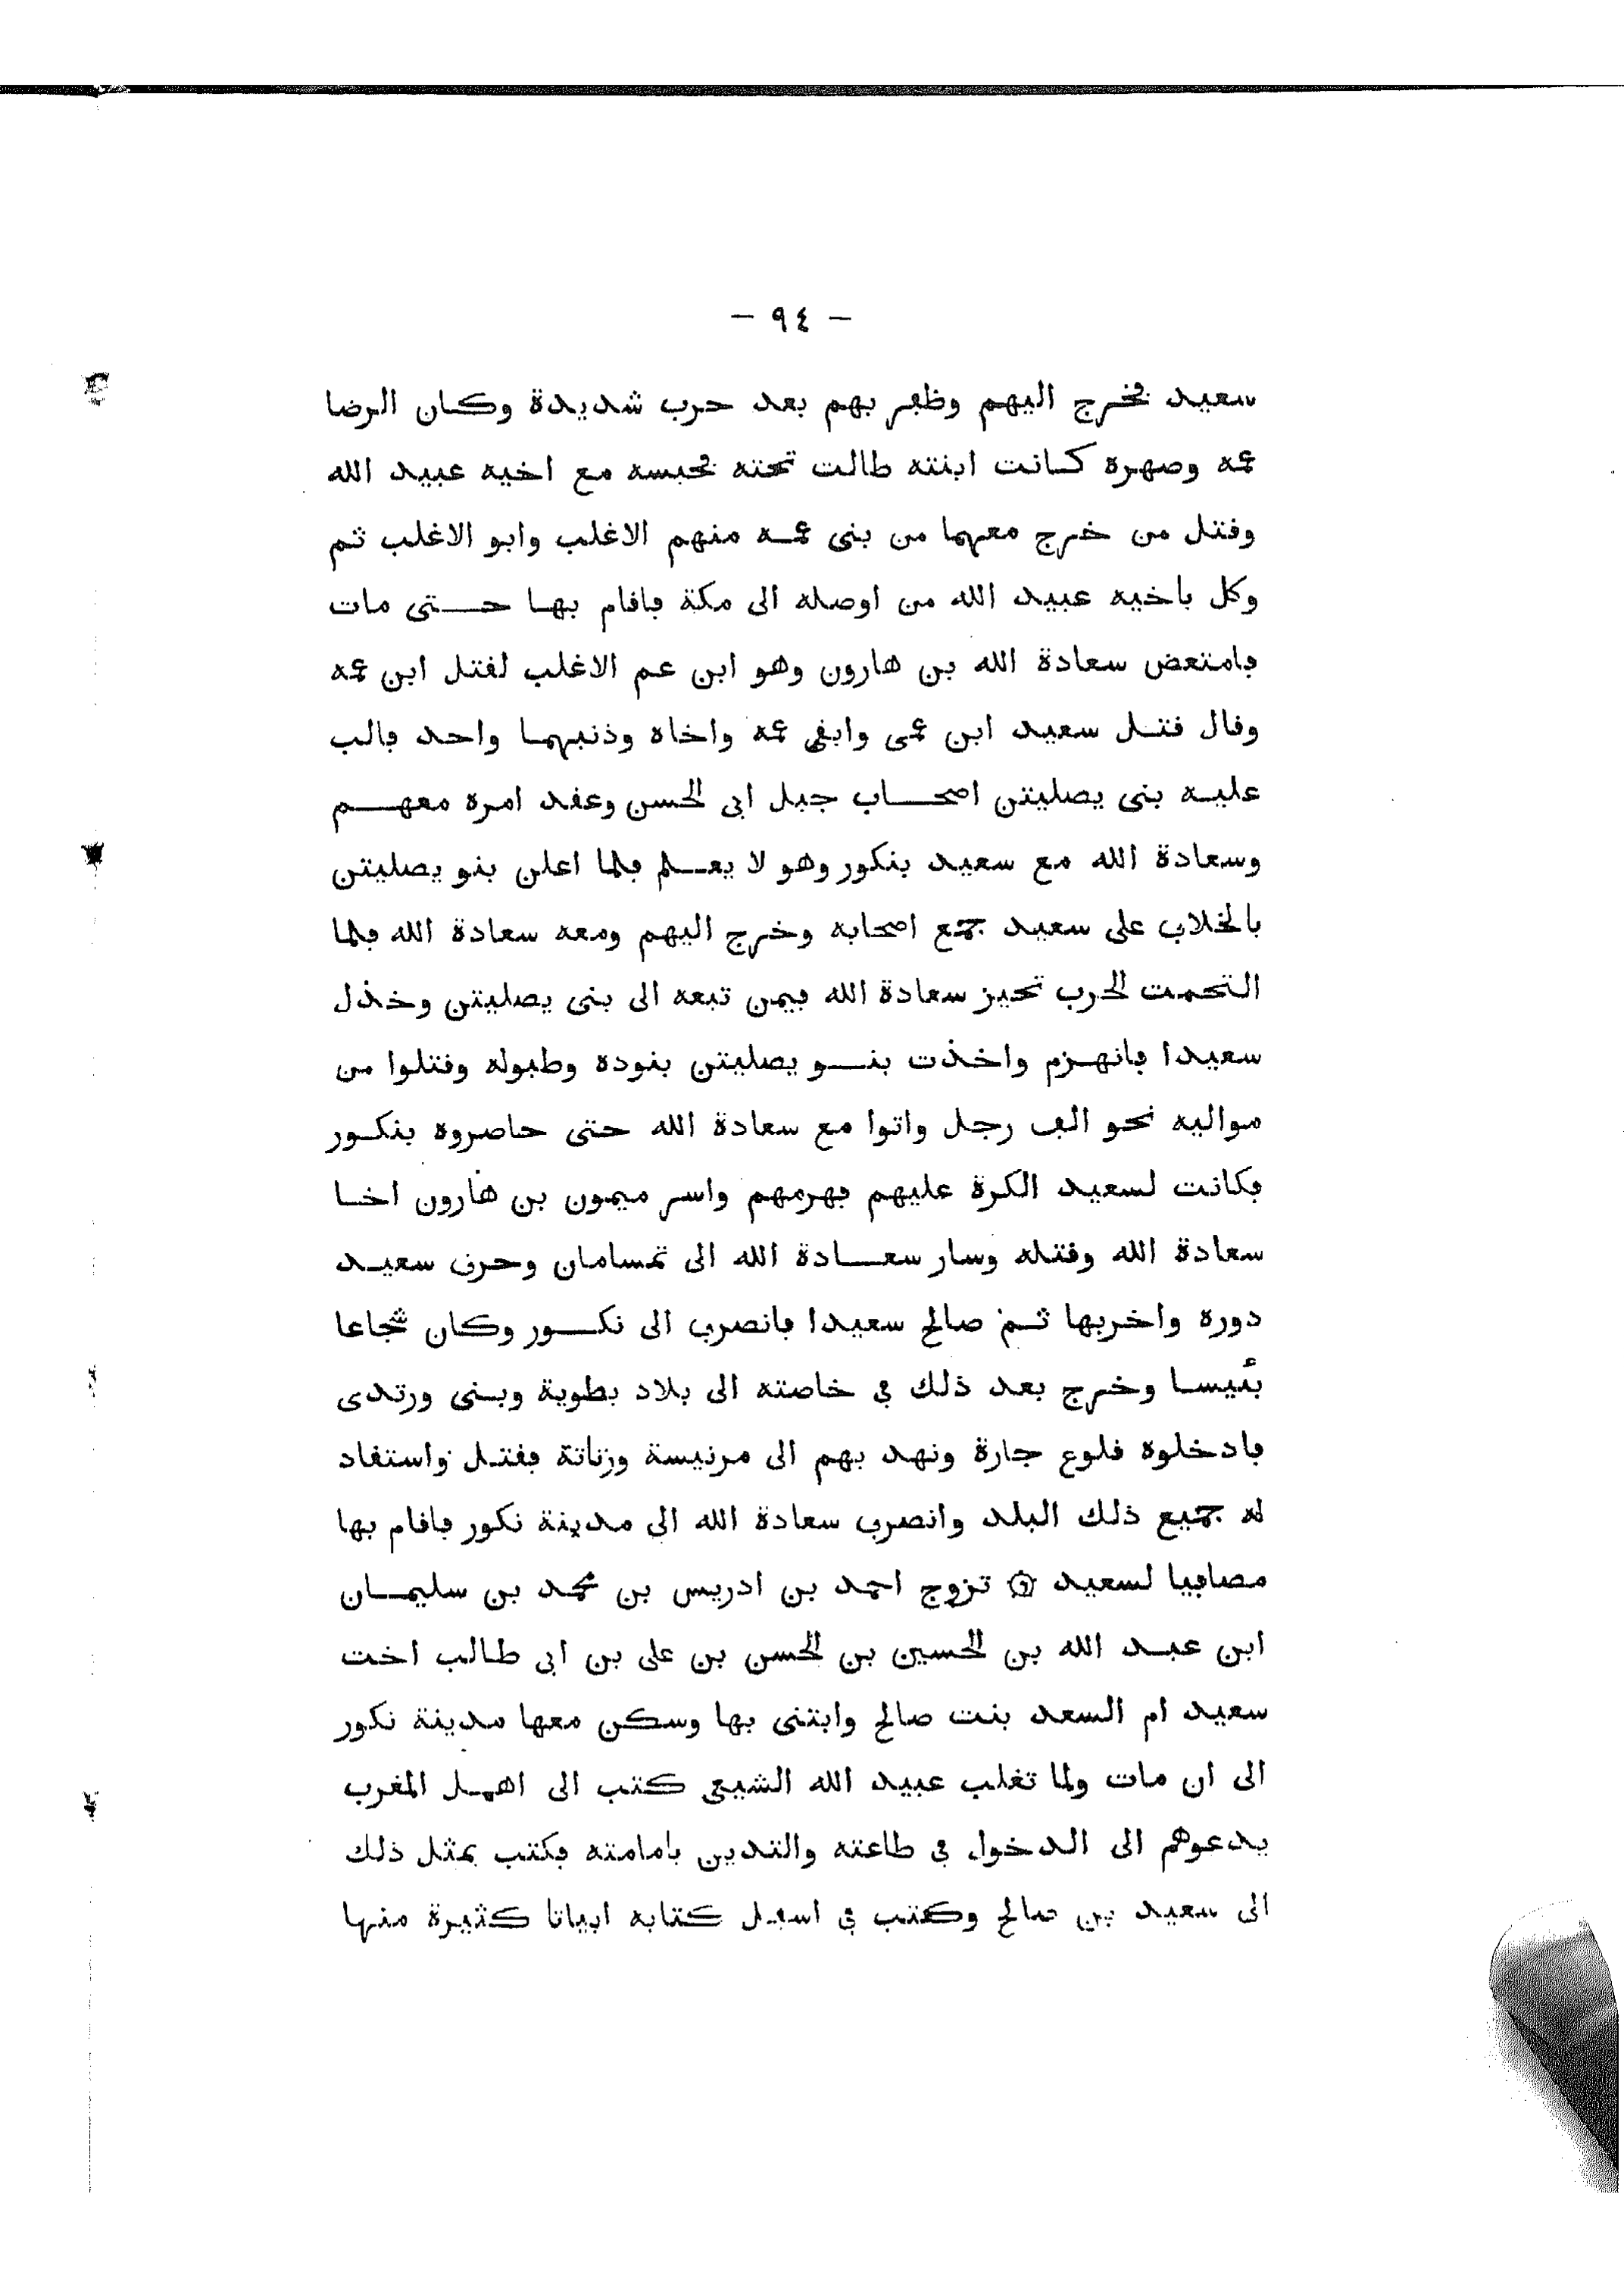 – ٩٤ –
سعيد فخرج اليهم وظفر بهم بعد حرب شديدة وكان الرضا
عمه وصهره كانت ابنته طالت تحته فحبسه مع اخيه عبيد الله
وقتل من خرج معهما من بنى عمه منهم الاغلب وابو الاغلب ثم
وكل باخيه عبيد الله من اوصله الى مكة فاقام بها حتى مات
فامتعض سعادة الله بن هارون وهو ابن عم الاغلب لقتل ابن عمه
وقال قتل سعيد ابن عمى وابقى عمه واخاه وذنبهما واحد فالب
عليه بنى يصليتن اصحاب جبل ابى الحسن وعقد امره معهم
وسعادة الله مع سعيد بنكور وهو لا يعلم فلما اعلن بنو يصليتن
بالخلاف على سعيد جمع اصحابه وخرج اليهم ومعه سعادة الله فلما
التحمت الحرب تحيز سعادة الله فيمن تبعه الى بنى يصليتن وخذل
سعيدا فانهزم واخذت بنو يصليتن بنوده وطبوله وقتلوا من
مواليه نحو الف رجل واتوا مع سعادة الله حتى حاصروه بنكور
فكانت لسعيد الكرة عليهم فهزمهم واسر ميمون بن هارون اخا
سعادة الله وقتله وسار سعادة الله الى تمسامان وحرق سعيد
دوره واخربها ثم صالح سعيدا فانصرف الى نكور وكان شجاعا
بئيسا وخرج بعد ذلك فى خاصته الى بلاد بطوية وبنى ورتدى
فادخلوه قلوع جارة ونهد بهم الى مرنيسة وزناتة فقتل واستقاد
له جميع ذلك البلد وانصرف سعادة الله الى مدينة نكور فاقام بها
مصافيا لسعيد ۞ تزوج احمد بن ادريس بن محمد بن سليمان
ابن عبد الله بن الحسين بن الحسن بن على بن ابى طالب اخت
سعيد ام السعد بنت صالح وابتنى بها وسكن معها مدينة نكور
الى ان مات ولما تغلب عبيد الله الشيعى كتب الى اهل المغرب
يدعوهم الى الدخول فى طاعته والتدين بامامته فكتب بمثل ذلك
الى سعيد بن صالح وكتب فى اسفل كتابه ابياتا كثيرة منها